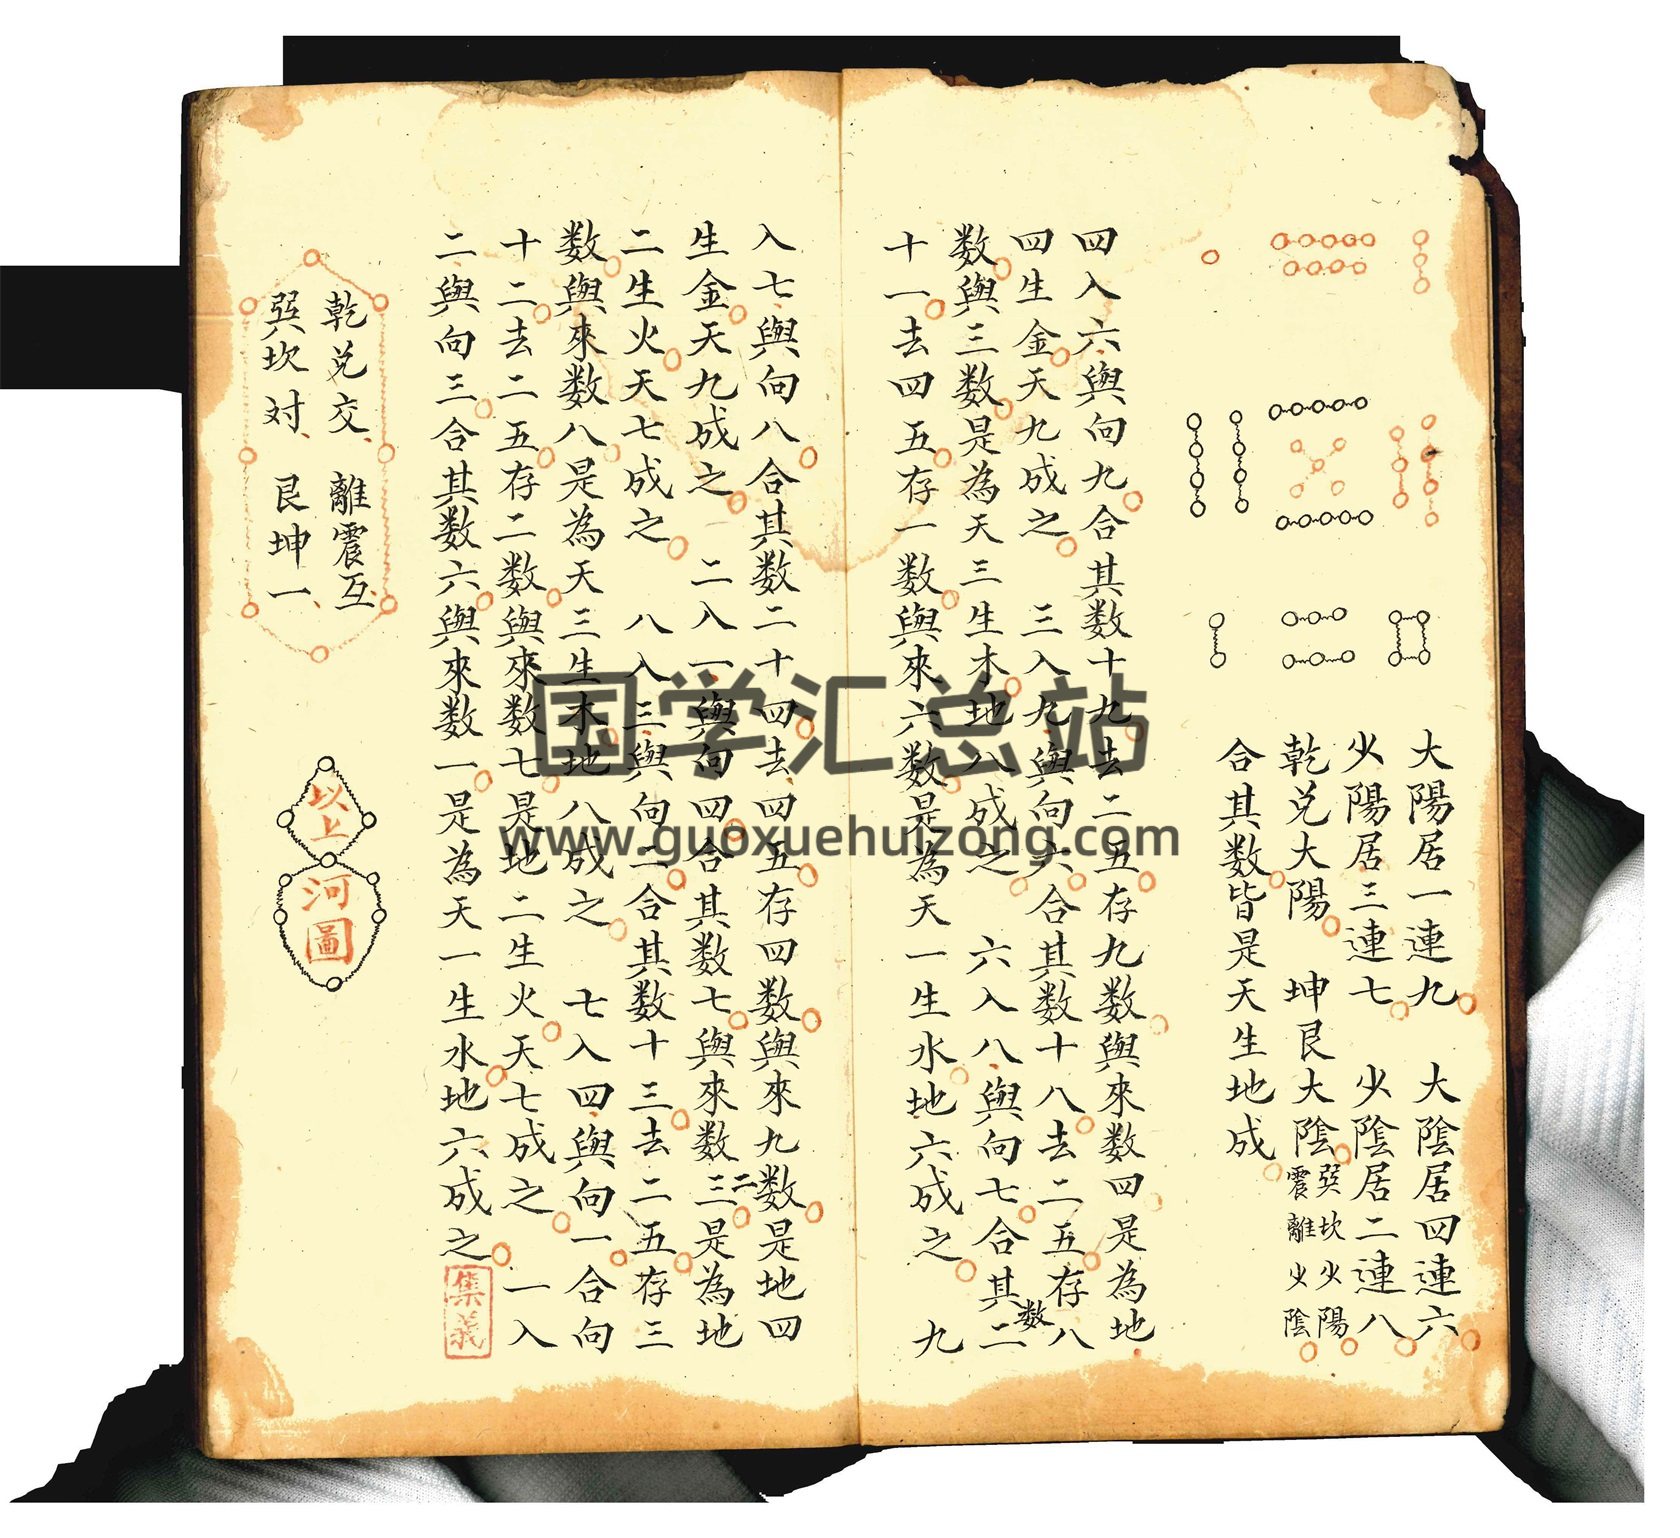 大陽居一連九　大陰居四連六
少陽居三連七　少陰居二連八
乾兌大陽　坤艮大陰
巽坎少陽
震離少陰
合其数皆是天生地成
四入六與向九合其数十九去二五存九数與來数四是為地
四生金天九成之　三入九與向六合其数十八去二五存八
数與三数是為天三生木地八成之　六入八與向七合其数二
十一去四五存一数與來六数是為天一生水地六成之　九
入七與向八合其数二十四去四五存四数與來九数是地四
生金天九成之　二入一與向四合其数七與來数二三是為地
二生火天七成之　八入三與向二合其数十三去二五存三
数與來数八是為天三生木地八成之　七入四與向一合向
十二去二五存二数與來数七是地二生火天七成之　一入
二與向三合其数六與來数一是為天一生水地六成之
集義
乾兌交　離震互
巽坎対　艮坤一
以上
河圖
国学汇总站
www.guoxuehuizong.com